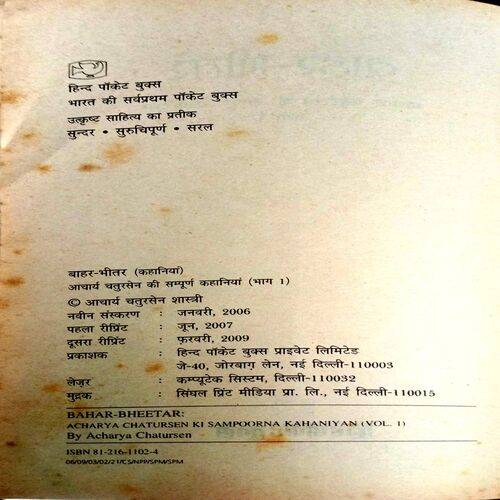 हिन्द पॉकेट बुक्स
भारत की सर्वप्रथम पॉकेट बुक्स
उत्कृष्ट साहित्य का प्रतीक
सुन्दर • सुरुचिपूर्ण • सरल
बाहर-भीतर (कहानियां)
आचार्य चतुरसेन की सम्पूर्ण कहानियां (भाग 1)
© आचार्य चतुरसेन शास्त्री
नवीन संस्करण : जनवरी, 2006
पहला रीप्रिंट : जून, 2007
दूसरा रीप्रिंट : फ़रवरी, 2009
प्रकाशक : हिन्द पॉकेट बुक्स प्राइवेट लिमिटेड
जे-40, जोरबाग़ लेन, नई दिल्ली-110003
लेज़र : कम्प्यूटेक सिस्टम, दिल्ली-110032
मुद्रक : सिंघल प्रिंट मीडिया प्रा. लि., नई दिल्ली-110015
BAHAR-BHEETAR:
ACHARYA CHATURSEN KI SAMPOORNA KAHANIYAN (VOL. 1)
By Acharya Chatursen
ISBN 81-216-1102-4
06/09/03/02/21/CS/NPP/SPM/SPM